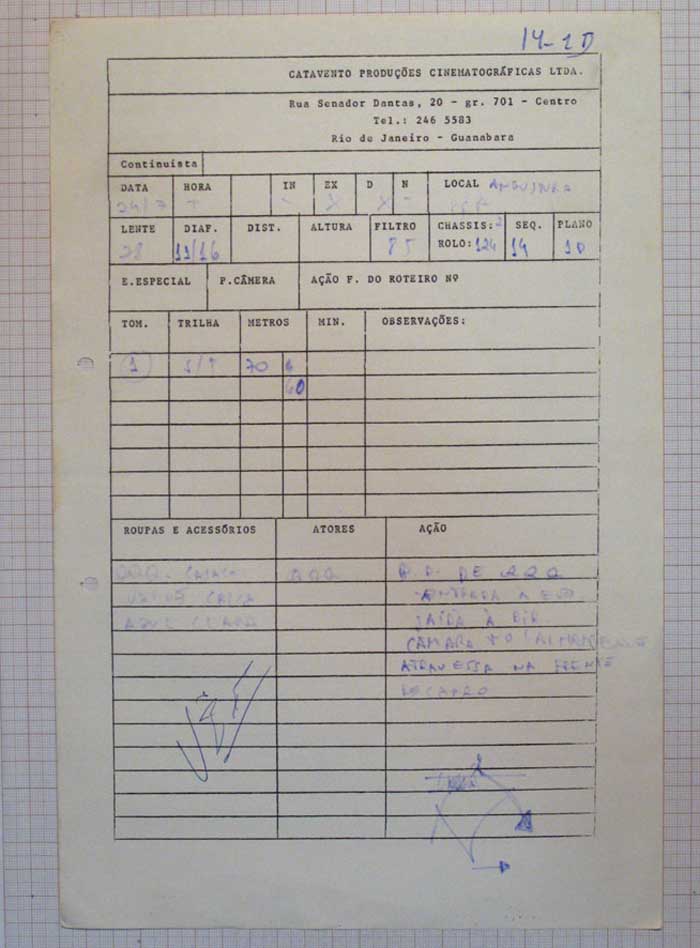 14-1D
CATAVENTO PRODUÇÕES CINEMATOGRÁFICAS LTDA.
Rua Senador Dantas, 20 - gr. 701 - Centro
Tel.: 246 5583
Rio de Janeiro - Guanabara
Continuista
DATA HORA IN EX D N LOCAL
24/7 - X X -
LENTE DIAF. DIST. ALTURA FILTRO CHASSIS: 2 SEQ. PLANO
28 11/16 85 ROLO: 124 14 1D
E.ESPECIAL P.CÂMERA AÇÃO F. DO ROTEIRO Nº
TOM. TRILHA METROS MIN. OBSERVAÇÕES:
1 S/T 70
60
ROUPAS E ACESSÓRIOS ATORES AÇÃO
DE
ENTRADA A
SAÍDA À DIR.
CAMARA
ATRAVESSA NA FRENTE
DE CARRO